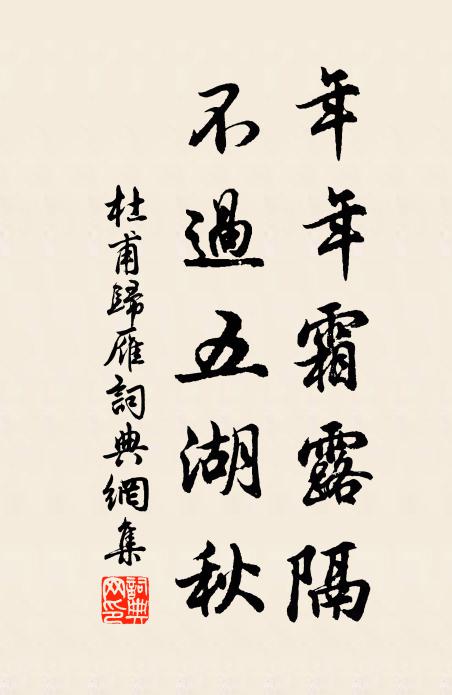 年年霜露隔
不過五湖秋
杜甫歸雁詞典網集
詞典網印